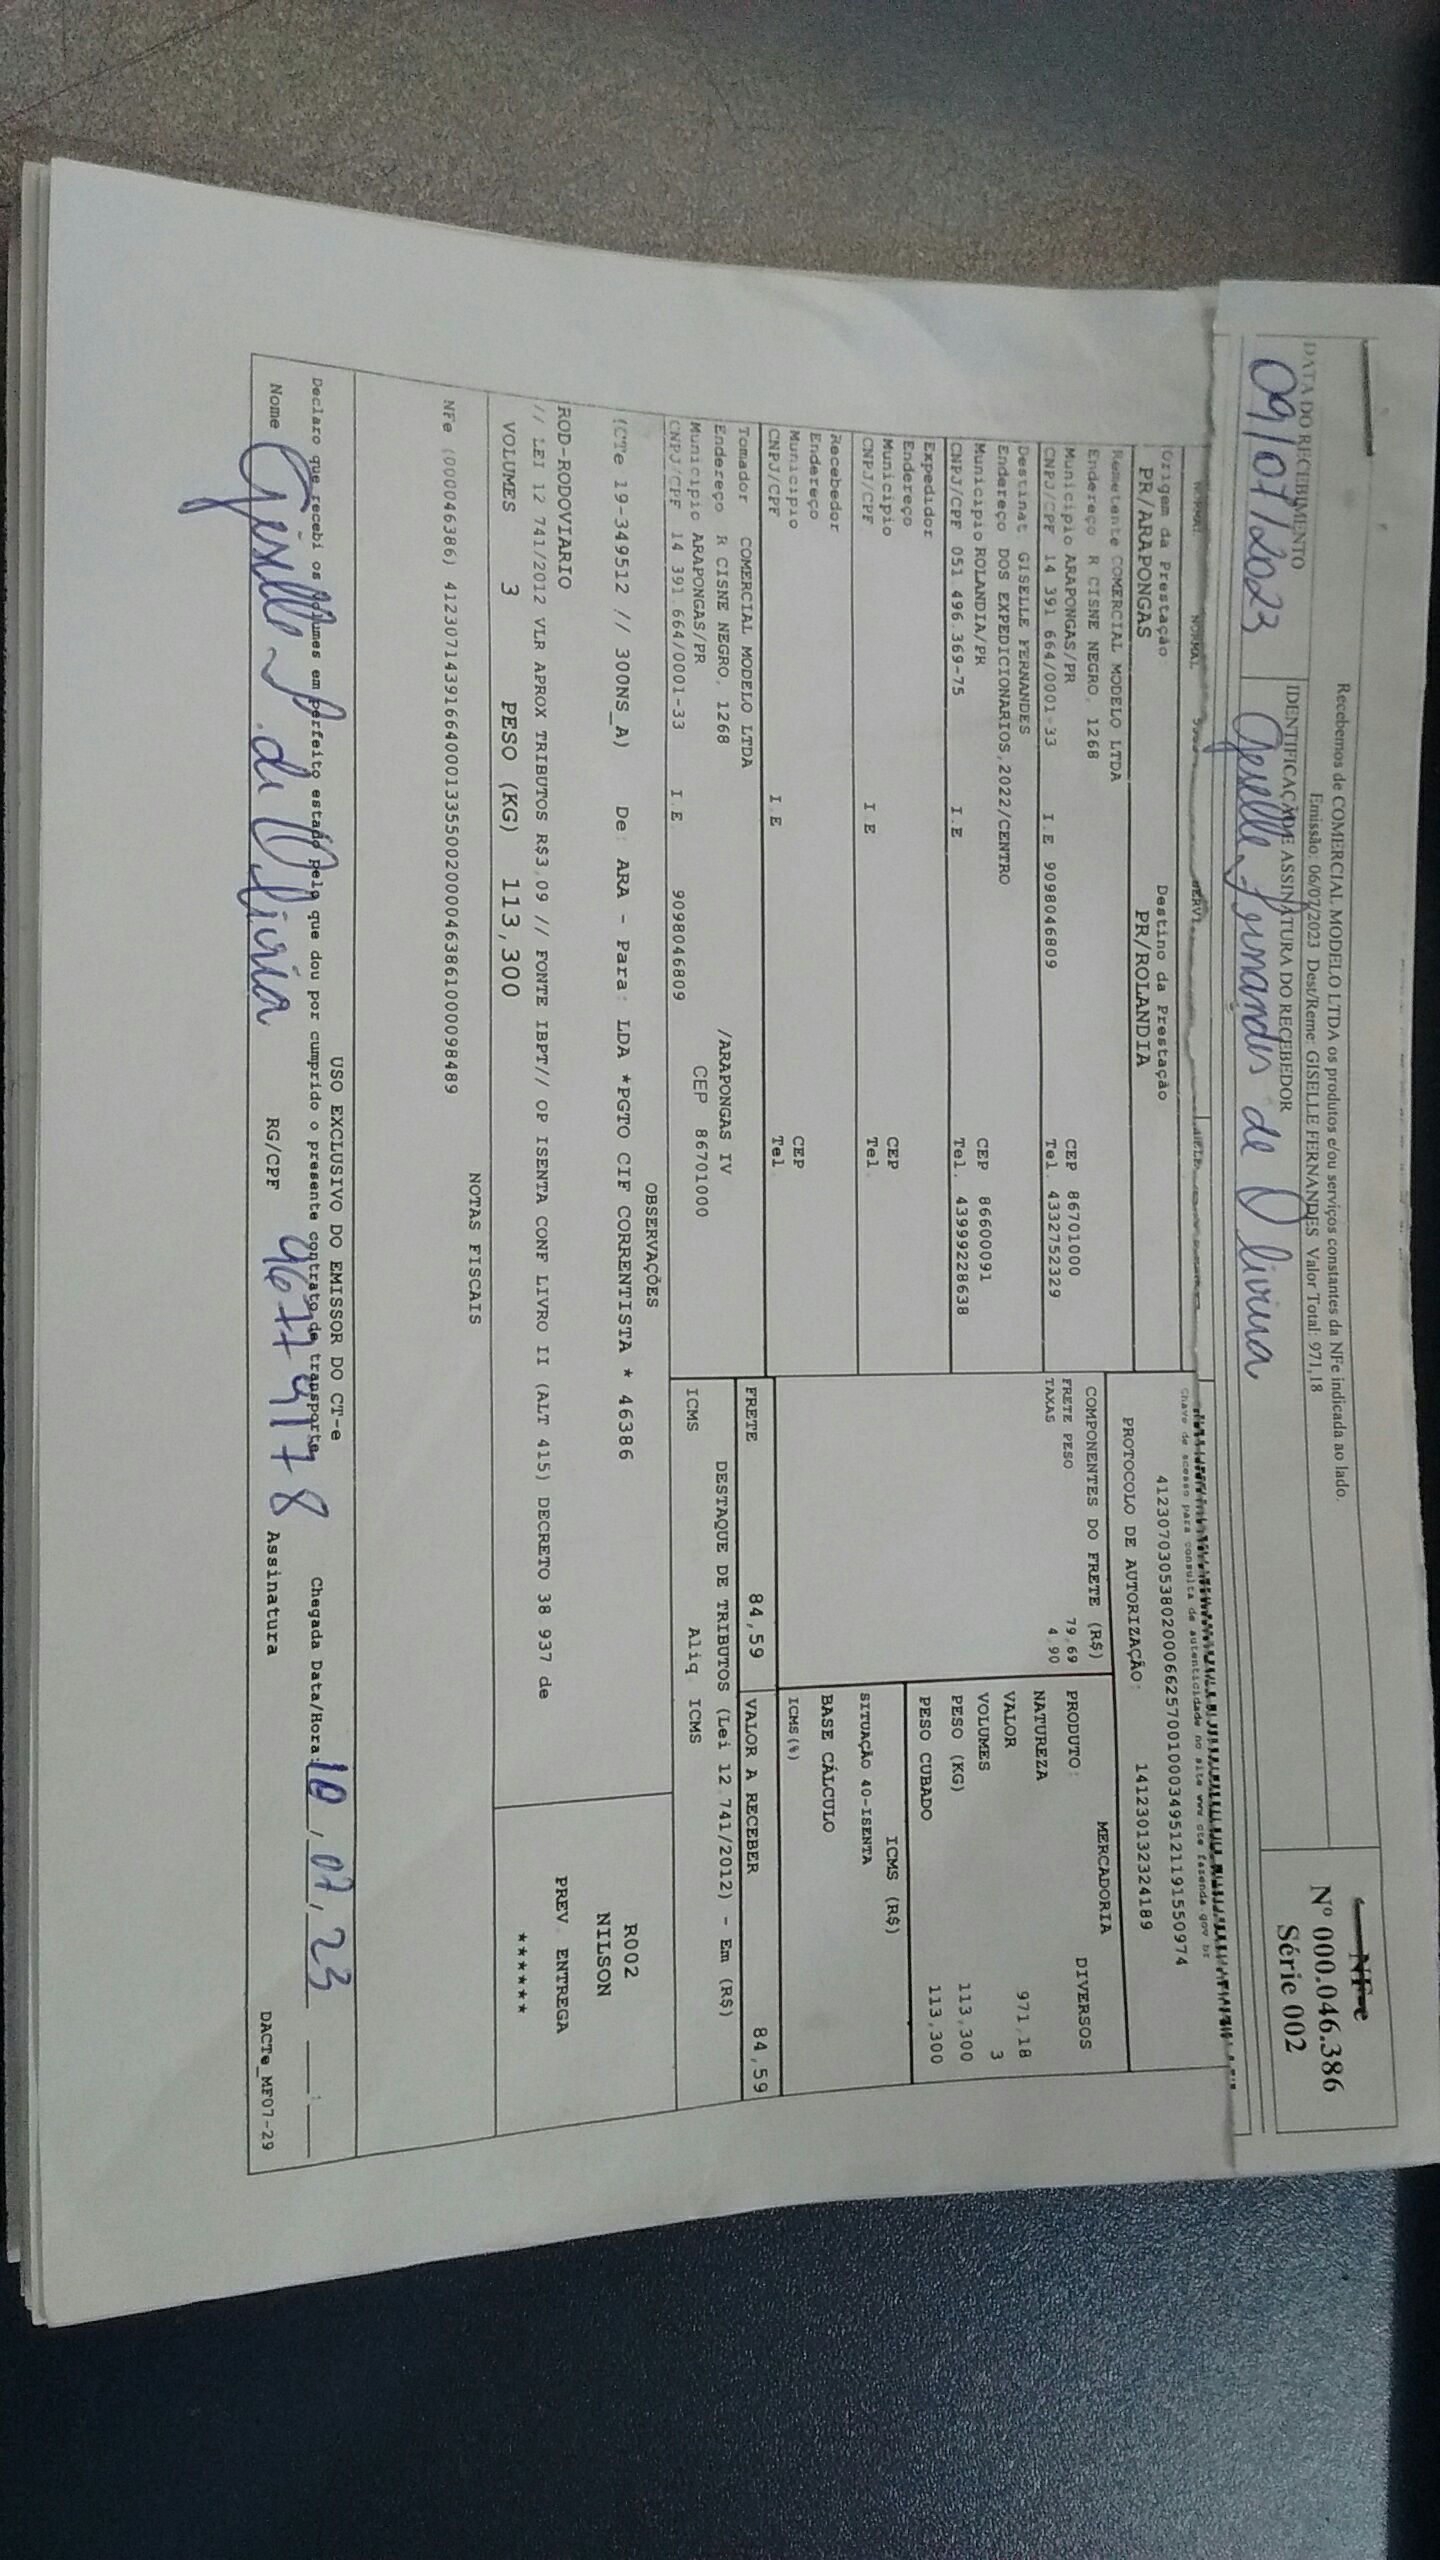 Recebemos de COMERCIAL MODELO LTDA os produtos e/ou serviços constantes da NFe indicada ao lado.
Emissão: 06/07/2023 Dest/Reme: GISELLE FERNANDES Valor Total: 971,18
NF-e
Nº 000.046.386
Série 002
DATA DO RECEBIMENTO
IDENTIFICAÇÃO E ASSINATURA DO RECEBEDOR
09/07/2023
Giselle Fernandes de Oliveira
NORMAL
Chave de acesso para consulta de autenticidade no site www cte fazenda gov br
41230703053802000662570010003495121191550974
PROTOCOLO DE AUTORIZAÇÃO: 141230132324189
Origem da Prestação:
PR/ARAPONGAS
Destino da Prestação
PR/ROLANDIA
Remetente COMERCIAL MODELO LTDA
Endereço R CISNE NEGRO, 1268
Município ARAPONGAS/PR CEP 86701000
CNPJ/CPF 14 391 664/0001-33 I.E 9098046809 Tel. 4332752329
Destinat GISELLE FERNANDES
Endereço DOS EXPEDICIONARIOS,2022/CENTRO
Município ROLANDIA/PR CEP 86600091
CNPJ/CPF 051 496.369-75 I.E Tel. 43999228638
Expedidor
Endereço
Município CEP
CNPJ/CPF I E Tel.
Recebedor
Endereço
Município CEP
CNPJ/CPF I.E Tel
Tomador COMERCIAL MODELO LTDA
Endereço R CISNE NEGRO, 1268 /ARAPONGAS IV
Município ARAPONGAS/PR CEP 86701000
CNPJ/CPF 14 391.664/0001-33 I.E 9098046809
COMPONENTES DO FRETE (R$)
FRETE PESO 79,69
TAXAS 4,90
MERCADORIA
PRODUTO: DIVERSOS
NATUREZA
VALOR 971,18
VOLUMES 3
PESO (KG) 113,300
PESO CUBADO 113,300
ICMS (R$)
SITUAÇÃO 40-ISENTA
BASE CÁLCULO
ICMS(%)
FRETE 84,59
VALOR A RECEBER 84,59
DESTAQUE DE TRIBUTOS (Lei 12.741/2012) - Em (R$)
ICMS Aliq. ICMS
OBSERVAÇÕES
(CTe 19-349512 // 300NS_A) De: ARA - Para: LDA *PGTO CIF CORRENTISTA * 46386
ROD-RODOVIARIO
// LEI 12 741/2012 VLR APROX TRIBUTOS R$3,09 // FONTE IBPT// OP ISENTA CONF LIVRO II (ALT 415) DECRETO 38 937 de
VOLUMES 3 PESO (KG) 113,300
R002
NILSON
PREV. ENTREGA
*******
NOTAS FISCAIS
NFe (000046386) 41230714391664000133550020000463861000098489
USO EXCLUSIVO DO EMISSOR DO CT-e
Declaro que recebi os volumes em perfeito estado pelo que dou por cumprido o presente contrato de transporte
Chegada Data/Hora: 10/07/23
Nome Giselle F. de Oliveira RG/CPF Assinatura
DACTe_MF07-29